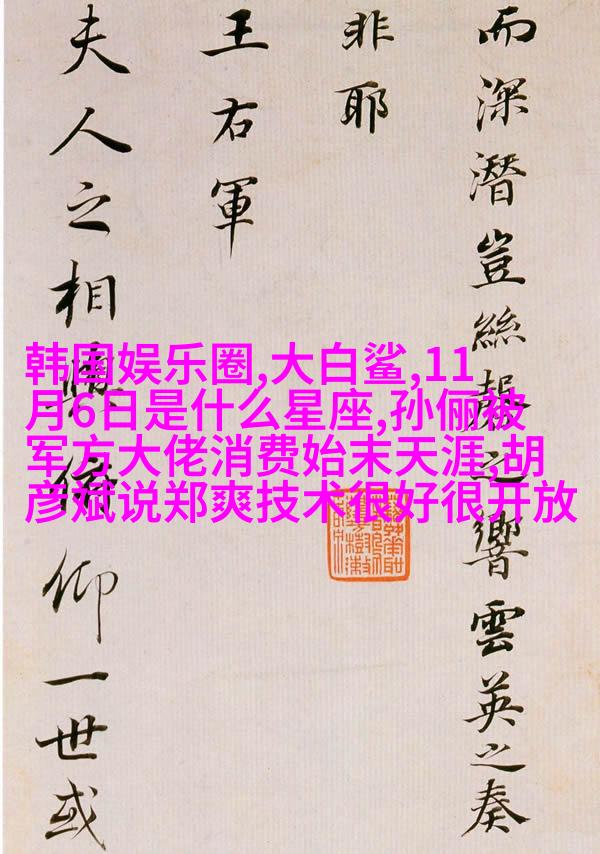 韩国娱乐圈,大白鲨,11
月6日是什么星座,孙俪被
军方大佬消费始末天涯,胡
彦斌说郑爽技术很好很开放
而深潛豈絲磬之響雲英之奏
非耶
王右軍
夫人之相與俯仰一世或